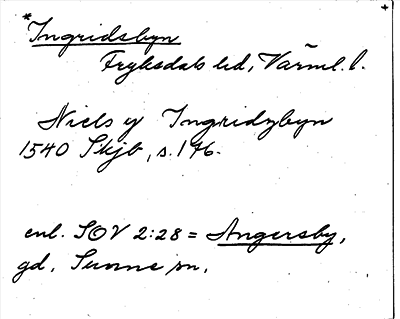 *Ingridsbyn
Fryksdals hd, Värml. l.
Niels y Ingridzbyn
1540 Skjb, s. 196.
enl. SOV 2:28 = Angersby,
gd, Sunne sn.